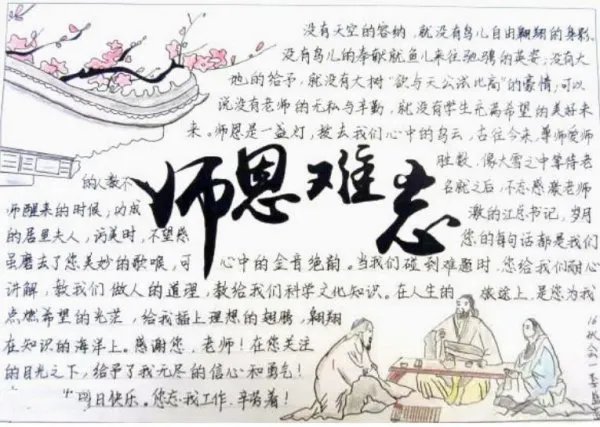 没有天空的容纳，就没有鸟儿自由翱翔的身影。
没有鸟儿的奉献就鱼儿来往驰骋的英姿；没有大
地的给予，就没有大树"欲与天公试比高"的豪情；可以
说没有老师的无私与辛勤，就没有学生充满希望的美好未
来。师恩是一盏灯，拨去我们心中的乌云，古往今来，尊师爱师
的人数不胜数，像大雪之中等待老
师醒来的时候；功成名就之后，不忘感激老师
的居里夫人，访美时，不望感激的江总书记，岁月
师恩难忘
虽磨去了您美妙的歌喉，可您的每句话都是我们
心中的金音绝韵。当我们碰到难题时，您给我们耐心
讲解，教我们做人的道理，教给我们科学文化知识。在人生的旅途上，是您为我
点燃希望的光芒，给我插上理想的翅膀，翱翔
在知识的海洋上。感谢您，老师！在您关注
的目光之下，给予了我无尽的信心和勇气！
日快乐。您忘我工作，辛劳着！